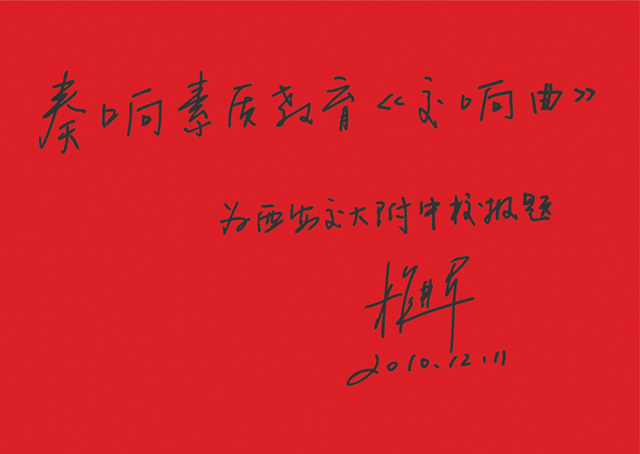 奏响素质教育《交响曲》
为西安交大附中校报题
2010.12.11